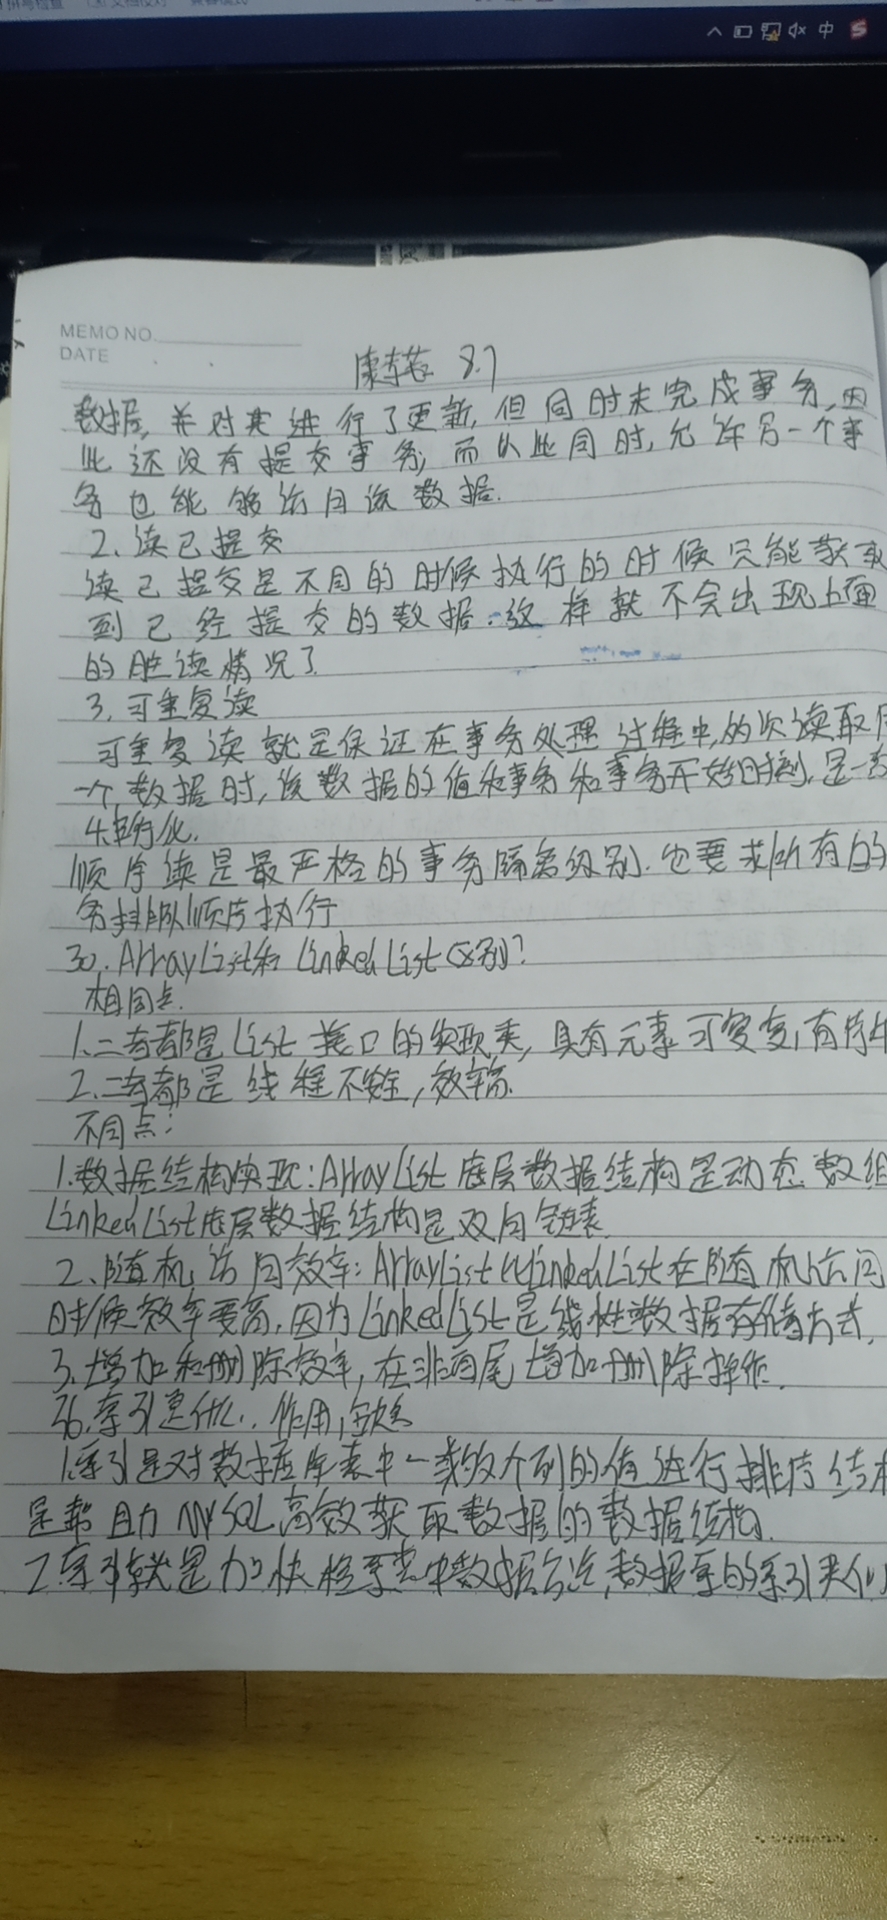 中
MEMO NO.
DATE
8.7
数据,并对其进行了更新,但同时未完成事务,因
此还没有提交事务,而以此同时,允许另一个事
务也能够访问该数据.
2、读已提交
读已提交是不同的时候执行的时候只能获取
到已经提交的数据.这样就不会出现上面
的脏读情况了
3、可重复读
可重复读就是保证在事务处理过程中,多次读取同
一个数据时,该数据的值和事务和事务开始时刻,是一致
4.串行化.
顺序读是最严格的事务隔离级别.也要求所有的
务排队顺序执行
30.ArrayList和LinkedList区别?
相同点.
1、二者都是List接口的实现类,具有元素可重复,有
2、二者都是线程不安全,效率高.
不同点:
1.数据结构实现:ArrayList底层数据结构是动态数组
LinkedList底层数据结构是双向链表
2、随机访问效率:ArrayList比LinkedList在随机访问
时候效率要高,因为LinkedList是线性数据存储方式,
3、增加和删除效率,在非首尾增加删除操作.
36.索引是什么..作用,缺点
1.索引是对数据库表中一或多个列的值进行排序结构
是帮助MySQL高效获取数据的数据结构.
2.索引就是加快检索表中数据方法,数据库的索引类似